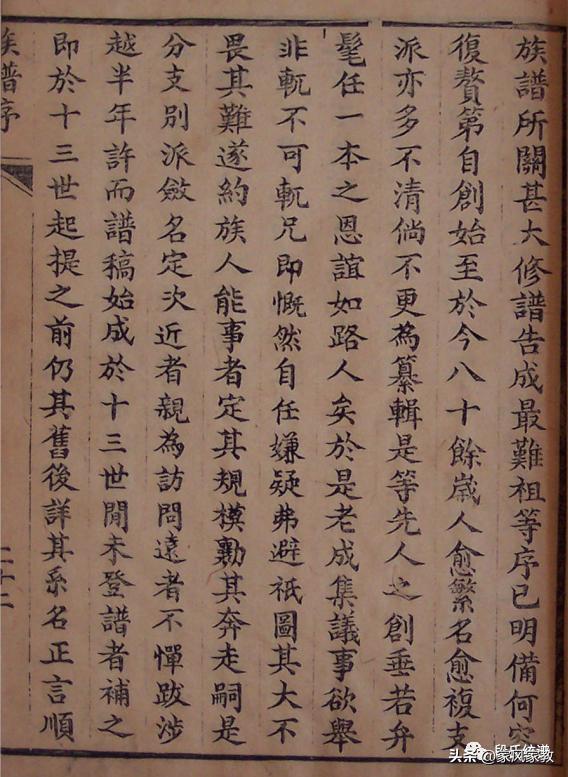 族譜所關甚大修譜告成最難祖等序已明備何容
復贅第自創始至於今八十餘嵗人愈繁名愈複支
派亦多不清倘不更為纂輯是等先人之創垂若弁
髦任一本之恩誼如路人矣於是老成集議事欲舉
非軏不可軏兄即慨然自任嫌疑弗避祇圖其大不
畏其難遂約族人能事者定其規模勷其奔走嗣是
分支別派斂名定次近者親為訪問遠者不憚跋涉
越半年許而譜稿始成於十三世閒未登譜者補之
即於十三世起提之前仍其舊後詳其系名正言順
族譜序
二十二
段氏统谱
头条@家风家教